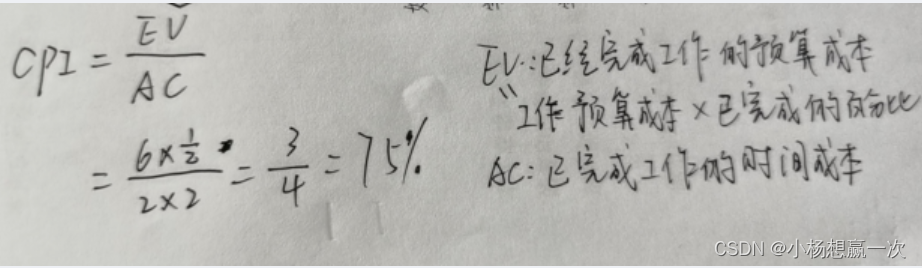 CPI = EV / AC
= 6×1/2 / 2×2 = 3/4 = 75%
EV:已经完成工作的预算成本
" 工作预算成本×已完成的百分比
AC:已完成工作的时间成本
CSDN @小杨想赢一次